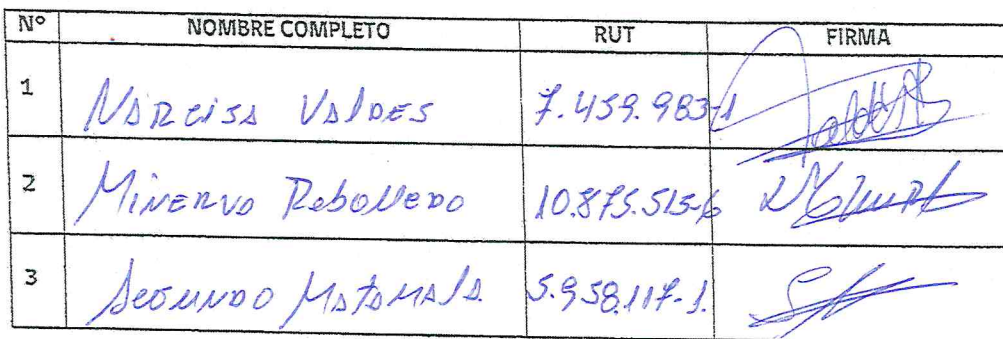 Nº NOMBRE COMPLETO RUT FIRMA
1 NARCISA VALDES 7.459.983-1
2 MINERVA REBOLLEDO 10.875.515-6
3 SEGUNDO MATAMALA 5.958.117-1.